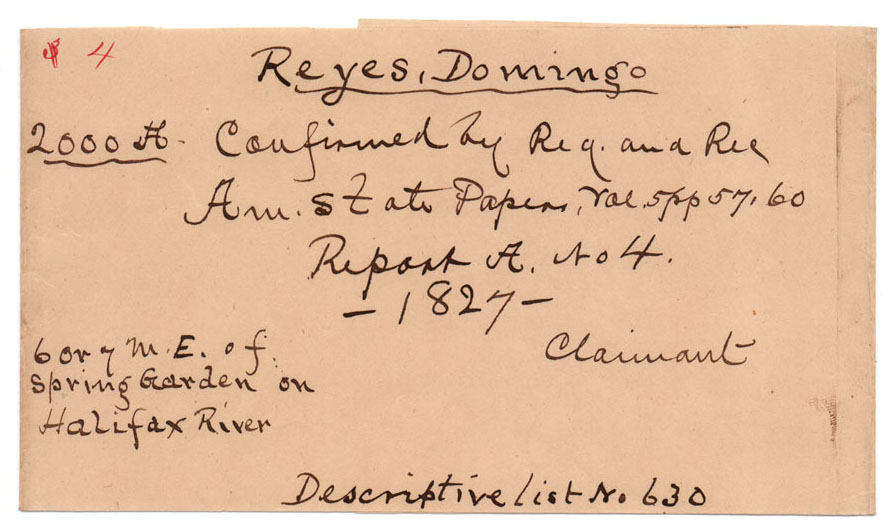 4
Reyes, Domingo
2000 A. Confirmed by Reg. and Rec
Am. State Papers, Vol. 5 pp 57, 60
Report A. No 4.
- 1827 -
Claimant
6 or 7 M. E. of
Spring Garden on
Halifax River
Descriptive list No 630